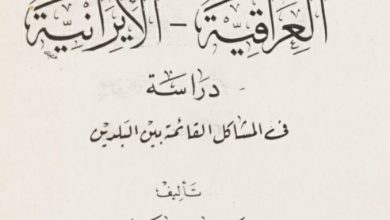 العِراقيّة - الأيرانيّة
دراسة
في المشاكل القائمة بين البلدين
تأليف: